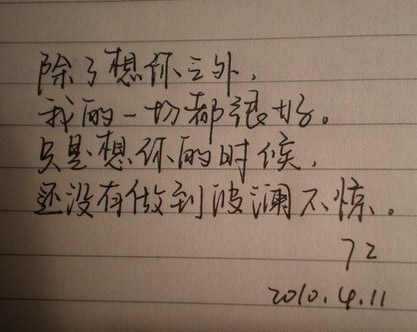 除了想你之外，
我的一切都很好。
只是想你的时候，
还没有做到波澜不惊。
72
2010.4.11